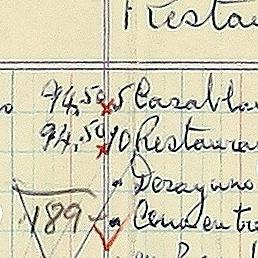 Restau
94,50 5 Casabla
94,50 10 Restaura
" Desayuno
189 - " Cena en tr